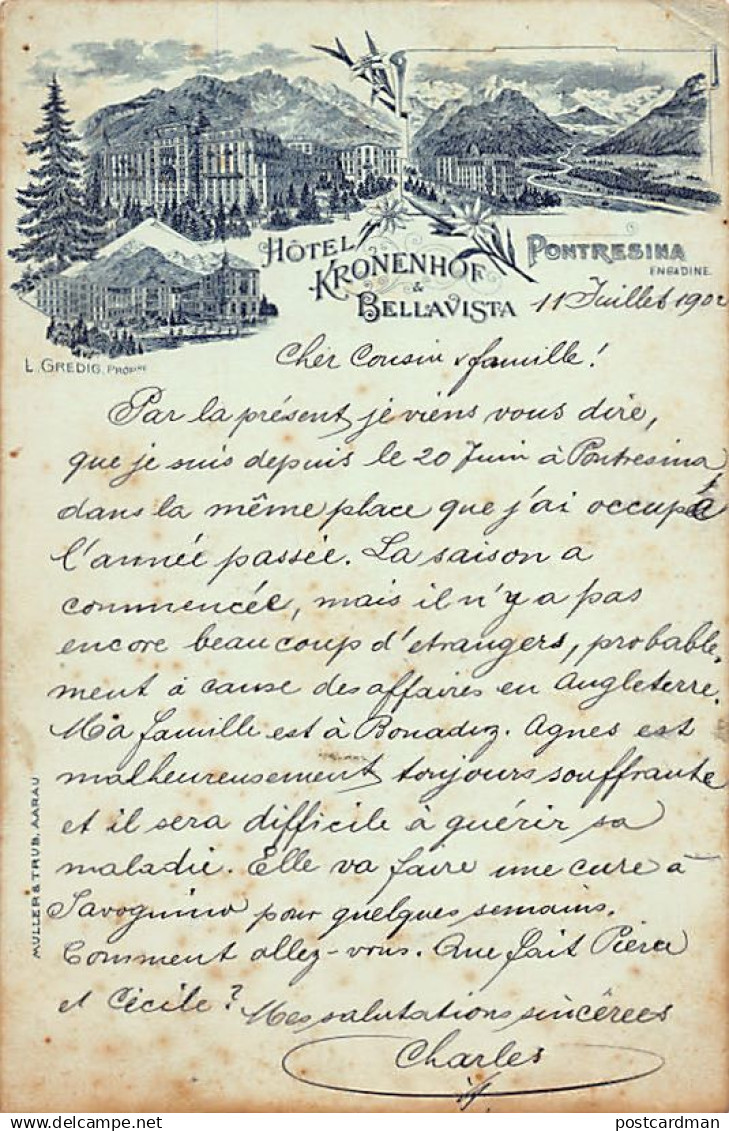 HÔTEL
KRONENHOF
&
BELLAVISTA
PONTRESINA
ENGADINE.
L. GREDIG, PROPRE
11 Juillet 1902
Cher Cousin & famille!
Par la présent, je viens vous dire,
que je suis depuis le 20 Juin à Pontresina,
dans la même place que j'ai occupé
l'année passée. La saison a
commencée, mais il n'y a pas
encore beaucoup d'etrangers, probable-
ment à cause des affaires en Angleterre.
Ma famille est à Bonaduz. Agnes est
malheureusement toujours souffrante
et il sera difficile à guérir sa
maladie. Elle va faire une cure à
Savognino pour quelques semains.
Comment allez-vous. Que fait Pierer
et Cécile? Mes salutations sincères
Charles
MULLER & TRUB, AARAU
postcardman